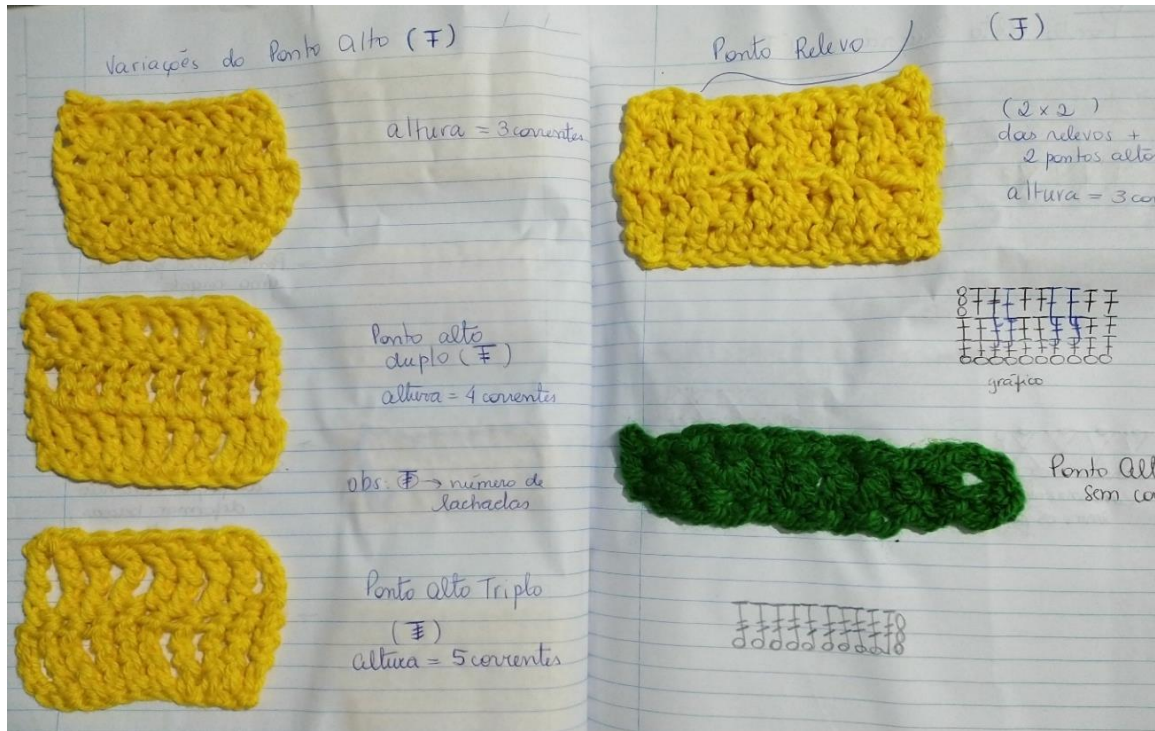 Variações do Ponto Alto (Ŧ)
altura = 3 correntes
Ponto alto
duplo (Ŧ)
altura = 4 correntes
obs: → número de
lachadas
Ponto alto Triplo
altura = 5 correntes
Ponto Relevo
(2 x 2 )
das relevos +
2 pontos alto
altura = 3 co
gráfico
Ponto Alt
sem co